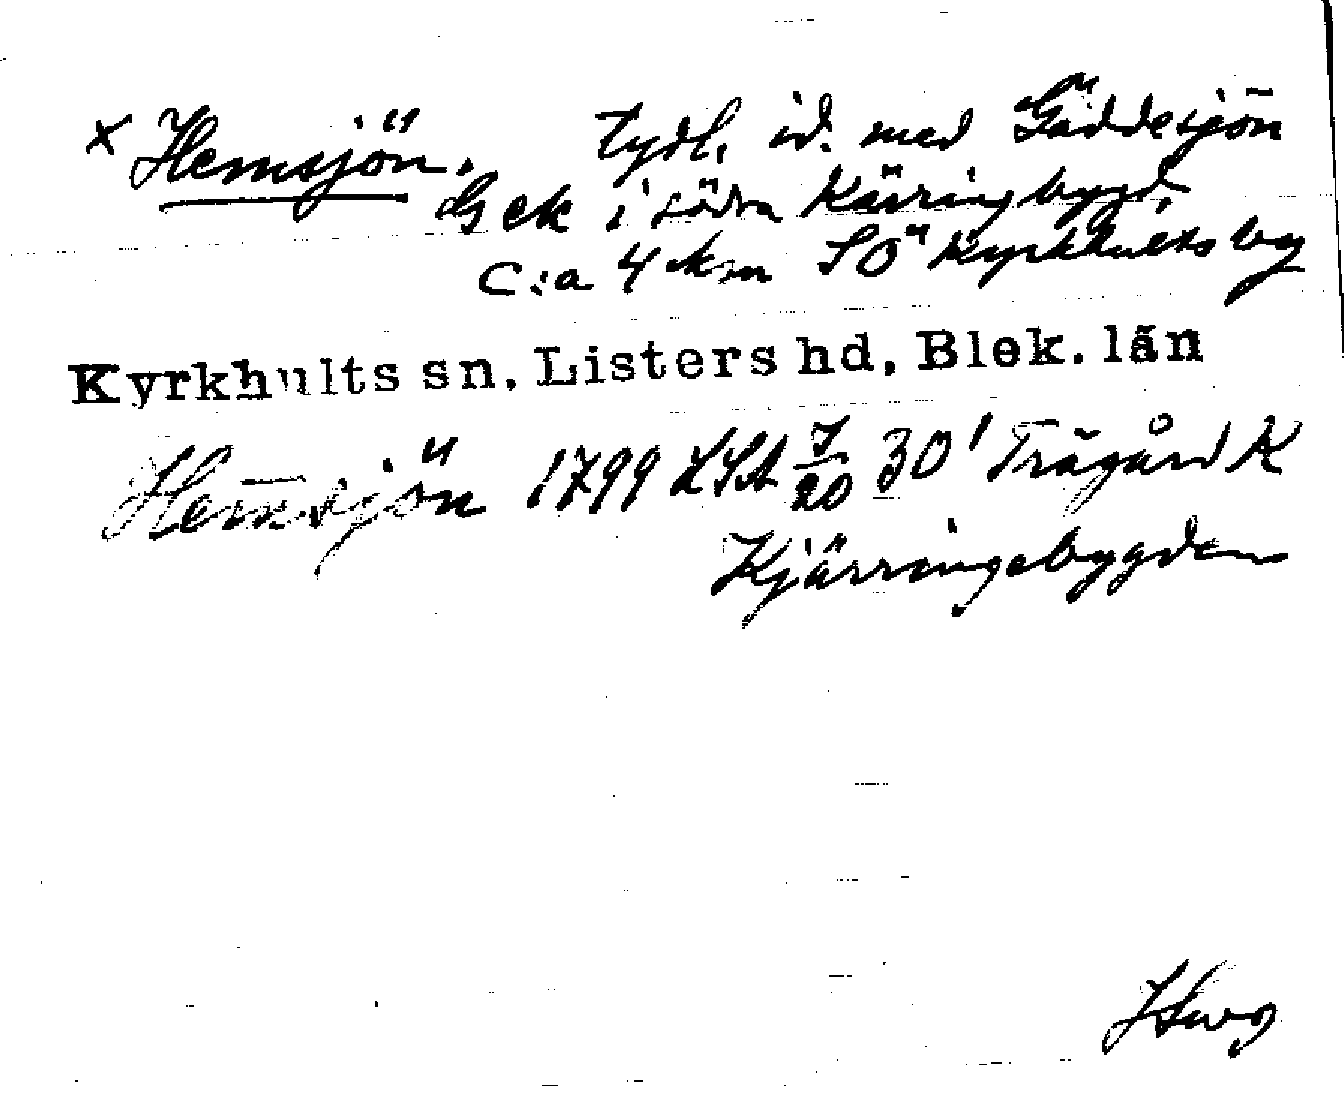 x Hemsjön. tydl. id. med Gäddesjön
G ek i södra Käringbygd.
C:a 4 km SÖ Kyrkhults by
Kyrkhults sn, Listers hd, Blek. län
Hemsjön 1799 LSA 7/20 30' Trägård K
Kjärringebygden